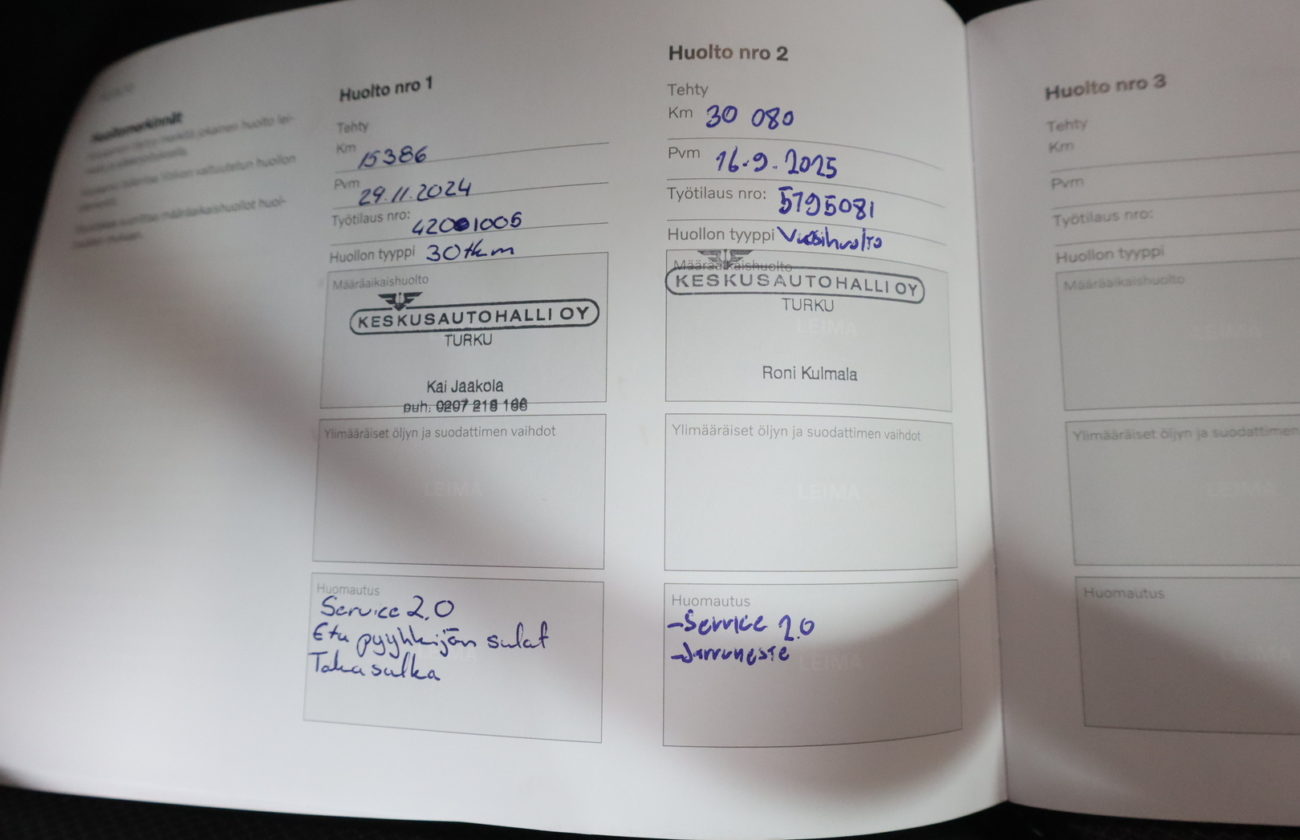 Huoltomerkinnät
Huolto nro 1
Tehty
Km 15386
Pvm 29.11.2024
Työtilaus nro: 42001005
Huollon tyyppi 30tkm
Määräaikaishuolto
KESKUSAUTOHALLI OY
TURKU
Kai Jaakola
puh. 0207 218 166
Ylimääräiset öljyn ja suodattimen vaihdot
LEIMA
Huomautus
Service 2.0
Etu pyyhkijän sulat
Taka sulka
Huolto nro 2
Tehty
Km 30 080
Pvm 16.9.2025
Työtilaus nro: 5795081
Huollon tyyppi Vuosihuolto
Määräaikaishuolto
KESKUSAUTOHALLI OY
TURKU
LEIMA
Roni Kulmala
Ylimääräiset öljyn ja suodattimen vaihdot
LEIMA
Huomautus
-Service 2.0
-Jarruneste
LEIMA
Huolto nro 3
Tehty
Km
Pvm
Työtilaus nro:
Huollon tyyppi
Määräaikaishuolto
LEIMA
Ylimääräiset öljyn ja suodattimen
LEIMA
Huomautus